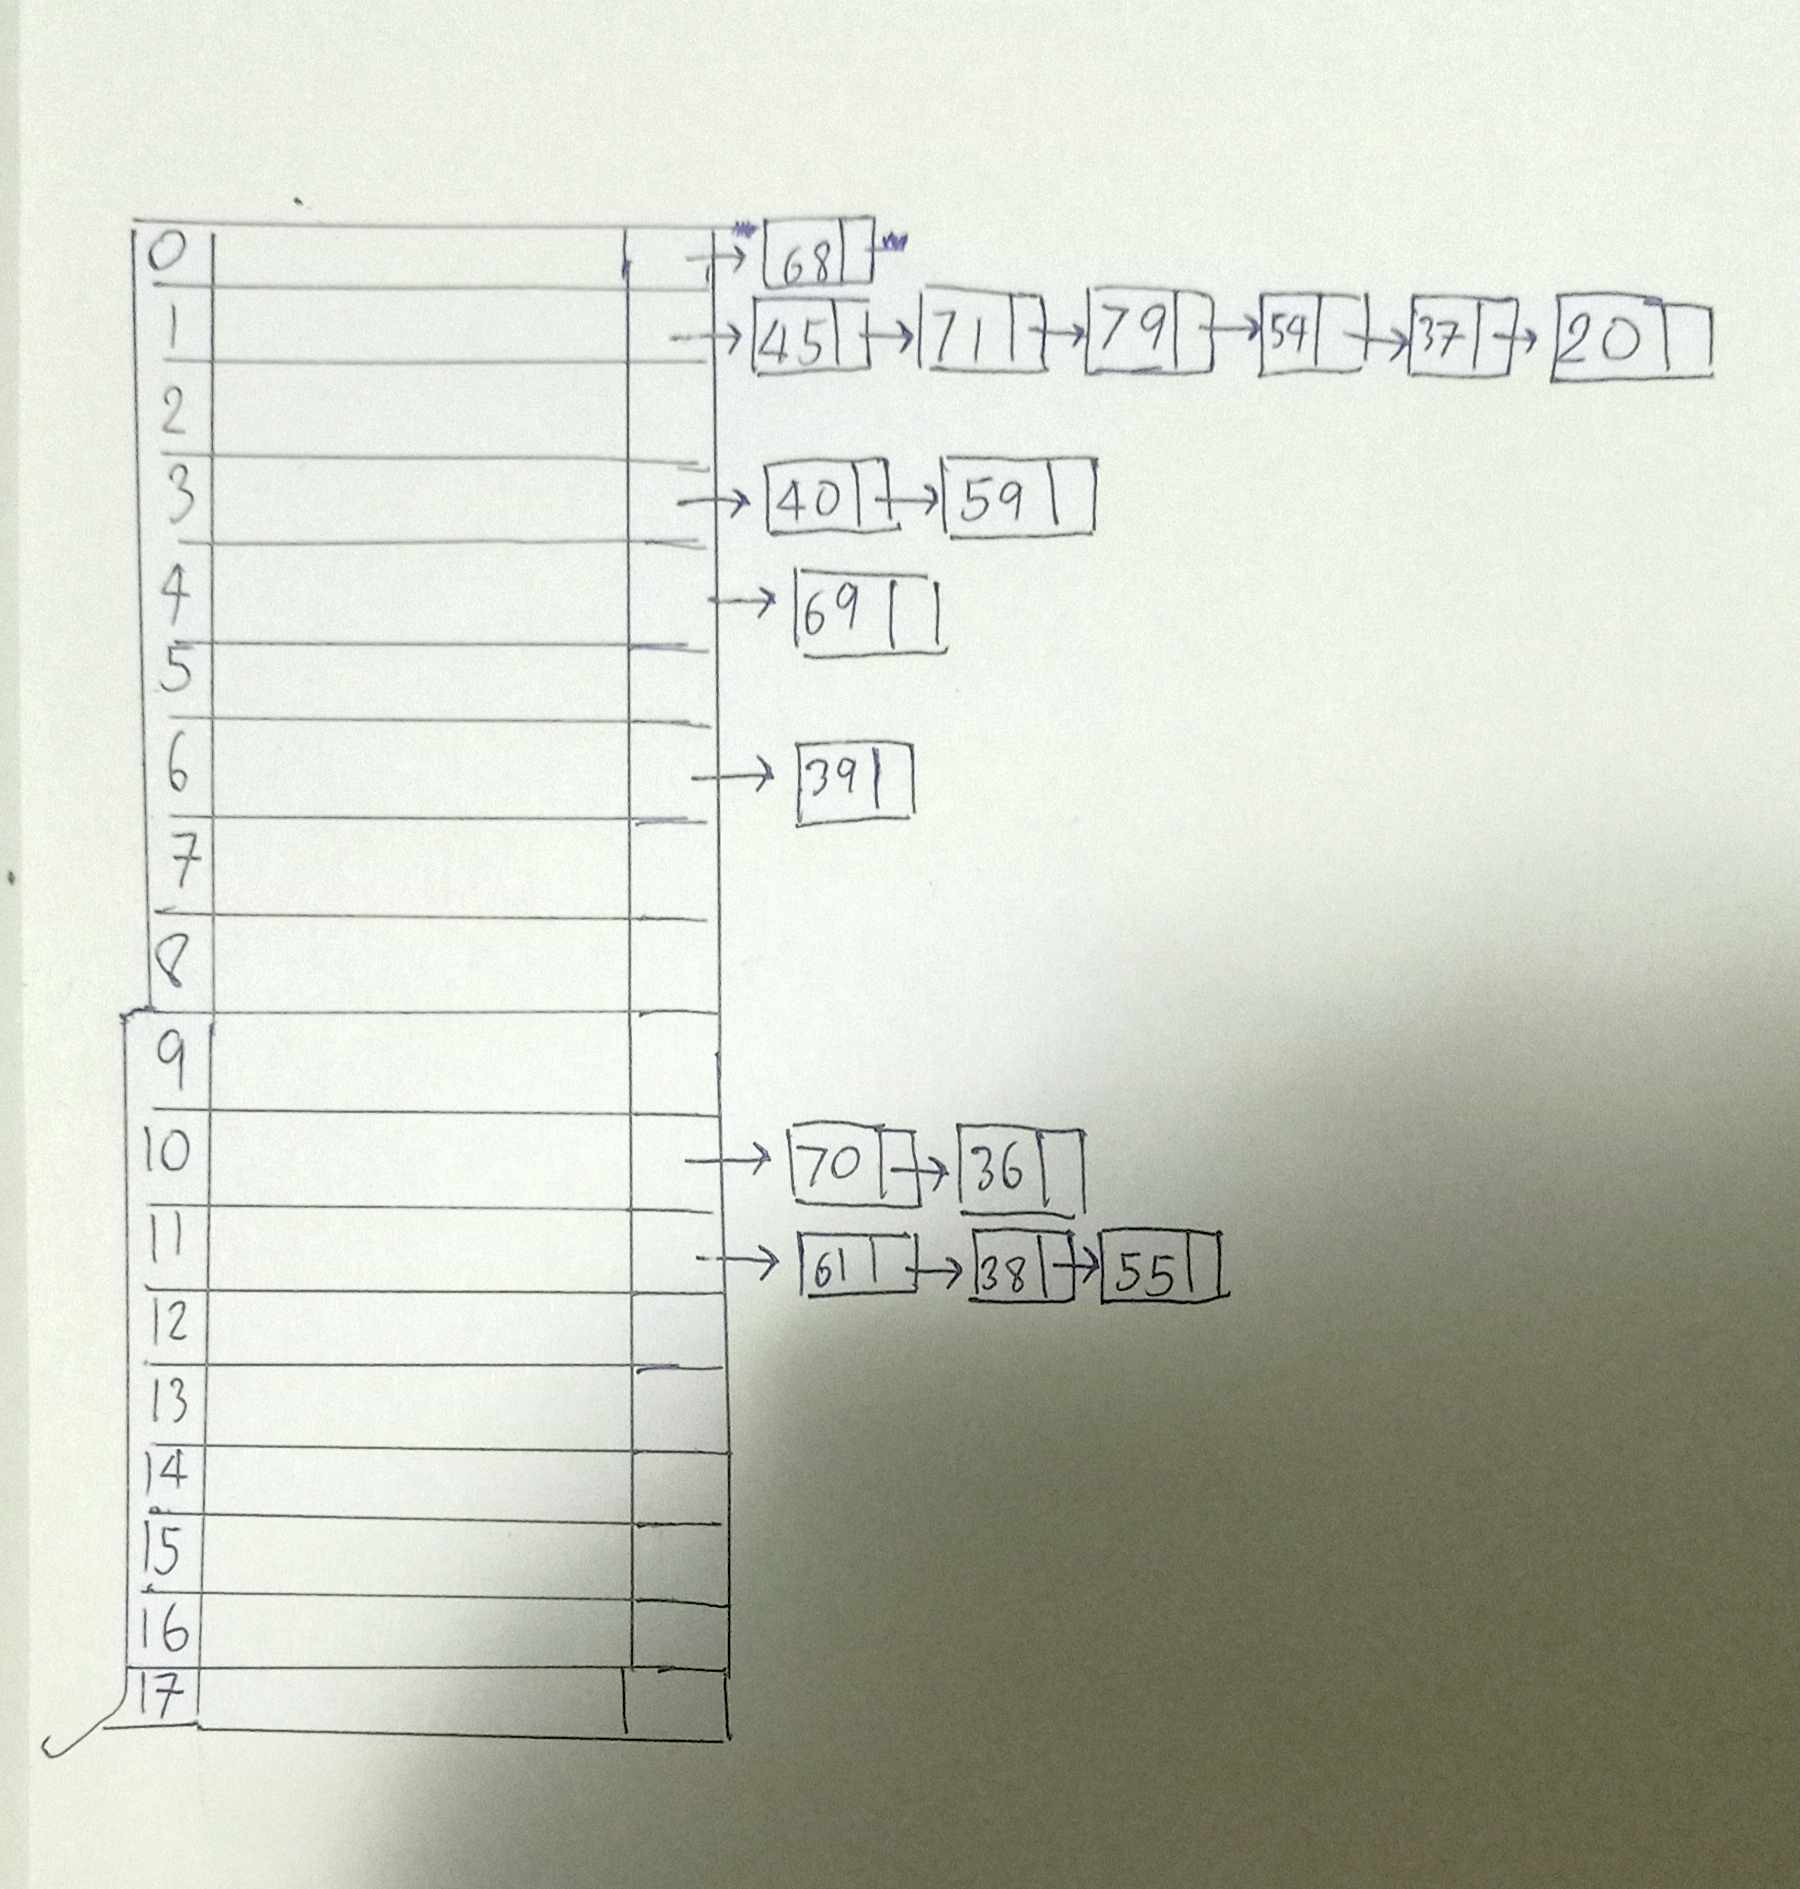 0 68
1 45 71 79 54 37 20
2
3 40 59
4 69
5
6 39
7
8
9
10 70 36
11 61 38 55
12
13
14
15
16
17